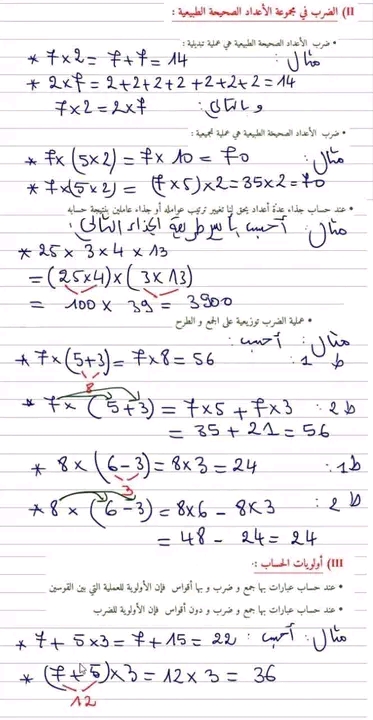 II) الضرب في مجموعة الأعداد الصحيحة الطبيعية :
• ضرب الأعداد الصحيحة الطبيعية هي عملية تبديلية :
مثال: * 7 x 2 = 7 + 7 = 14
* 2 x 7 = 2 + 2 + 2 + 2 + 2 + 2 + 2 = 14
وبالتالي: 7 x 2 = 2 x 7
• ضرب الأعداد الصحيحة الطبيعية هي عملية تجميعية :
مثال: * 7 x (5 x 2) = 7 x 10 = 70
* 7 x (5 x 2) = (7 x 5) x 2 = 35 x 2 = 70
• عند حساب جذاء عدة أعداد يحق لنا تغيير ترتيب عوامله أو جذاء عاملين بنتيجة حسابه
مثال: أحسب بأيسر طريقة الجذاء التالي:
* 25 x 3 x 4 x 13
= (25 x 4) x (3 x 13)
= 100 x 39 = 3900
• عملية الضرب توزيعية على الجمع و الطرح
مثال: أحسب:
ط 1: * 7 x (5 + 3) = 7 x 8 = 56
8
ط 2: * 7 x (5 + 3) = 7 x 5 + 7 x 3
= 35 + 21 = 56
ط 1: * 8 x (6 - 3) = 8 x 3 = 24
3
ط 2: * 8 x (6 - 3) = 8 x 6 - 8 x 3
= 48 - 24 = 24
III) أولويات الحساب :
• عند حساب عبارات بها جمع و ضرب و بها أقواس فإن الأولوية للعملية التي بين القوسين
• عند حساب عبارات بها جمع و ضرب و دون أقواس فإن الأولوية للضرب
مثال: أحسب: * 7 + 5 x 3 = 7 + 15 = 22
* (7 + 5) x 3 = 12 x 3 = 36
12